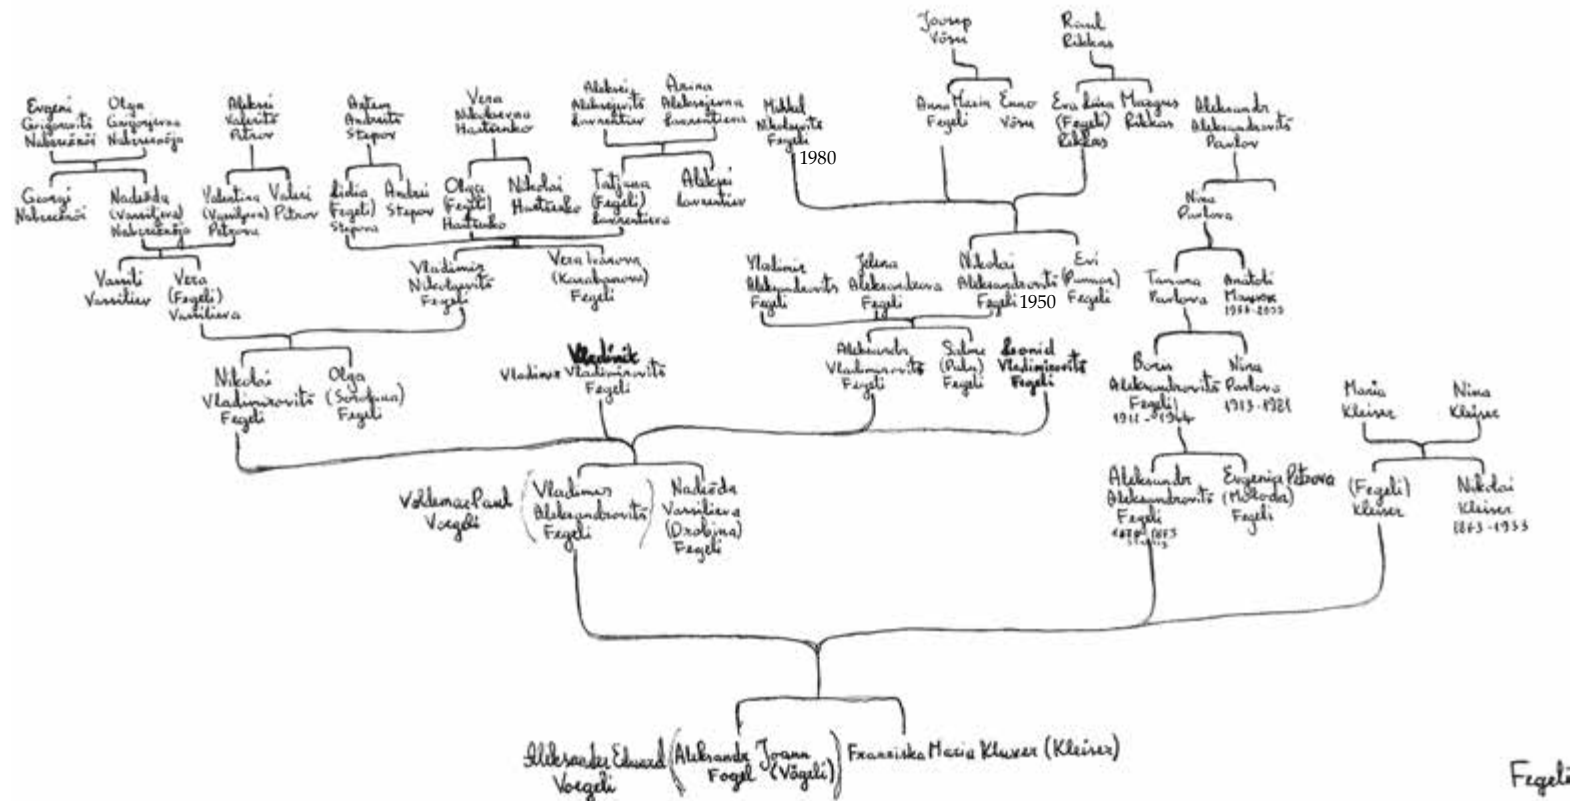 Joosep
Võsu
Raul
Rikkas
Evgeni
Grigorevitš
Naberežnõi
Olga
Grigorjevna
Naberežnõja
Aleksei
Valeritš
Petrov
Artem
Andreitš
Stepov
Vera
Nikolaevna
Hartšenko
Aleksei
Aleksejevitš
Lavrentiev
Arina
Aleksejevna
Lavrentieva
Mihkel
Nikolaevitš
Fegeli
1980
Anna Maria
Fegeli
Enno
Võsu
Eva Liina
(Fegeli)
Rikkas
Margus
Rikkas
Aleksandr
Aleksandrovitš
Pavlov
Georgi
Naberežnõi
Nadežda
(Vassiljeva)
Naberežnõja
Valentina
(Vassiljeva)
Petrova
Valeri
Petrov
Lidia
(Fegeli)
Stepova
Andrei
Stepov
Olga
(Fegeli)
Hartšenko
Nikolai
Hartšenko
Tatjana
(Fegeli)
Lavrentieva
Aleksei
Lavrentiev
Nina
Pavlova
Vassili
Vassiliev
Vera
(Fegeli)
Vassilieva
Vladimir
Nikolajevitš
Fegeli
Vera Ivanovna
(Karabanova)
Fegeli
Vladimir
Aleksandrovitš
Fegeli
Jelena
Aleksandrovna
Fegeli
Nikolai
Aleksandrovitš
Fegeli 1950
Evi
Fegeli
Tamara
Pavlova
Anatoli
Nikolai
Vladimirovitš
Fegeli
Olga
(Sorokina)
Fegeli
Vladimir
Vladimir Vladimirovitš
Fegeli
Aleksandr
Vladimirovitš
Fegeli
Salme
Fegeli
Leonid
Vladimirovitš
Fegeli
Boris
Aleksandrovitš
Fegeli
Nina
Pavlova
1913-1981
Maria
Kleiser
Nina
Kleiser
Voldemar Paul
Voegeli
(Vladimir
Aleksandrovitš
Fegeli)
Nadežda
Vassilieva
(Drobina)
Fegeli
Aleksandr
Aleksandrovitš
Fegeli
Evgenija Petrovna
Fegeli
(Fegeli)
Kleiser
Nikolai
Kleiser
1863-1933
Aleksander Eduard
Voegeli
(Aleksandr Joann
Fogel (Vögeli))
Franziska Maria Kluxer (Kleiser)
Fegeli